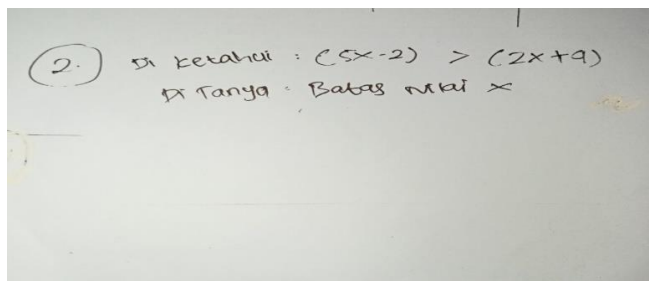 2. Di ketahui : (5x-2) > (2x+9)
Di Tanya : Batas Nilai x